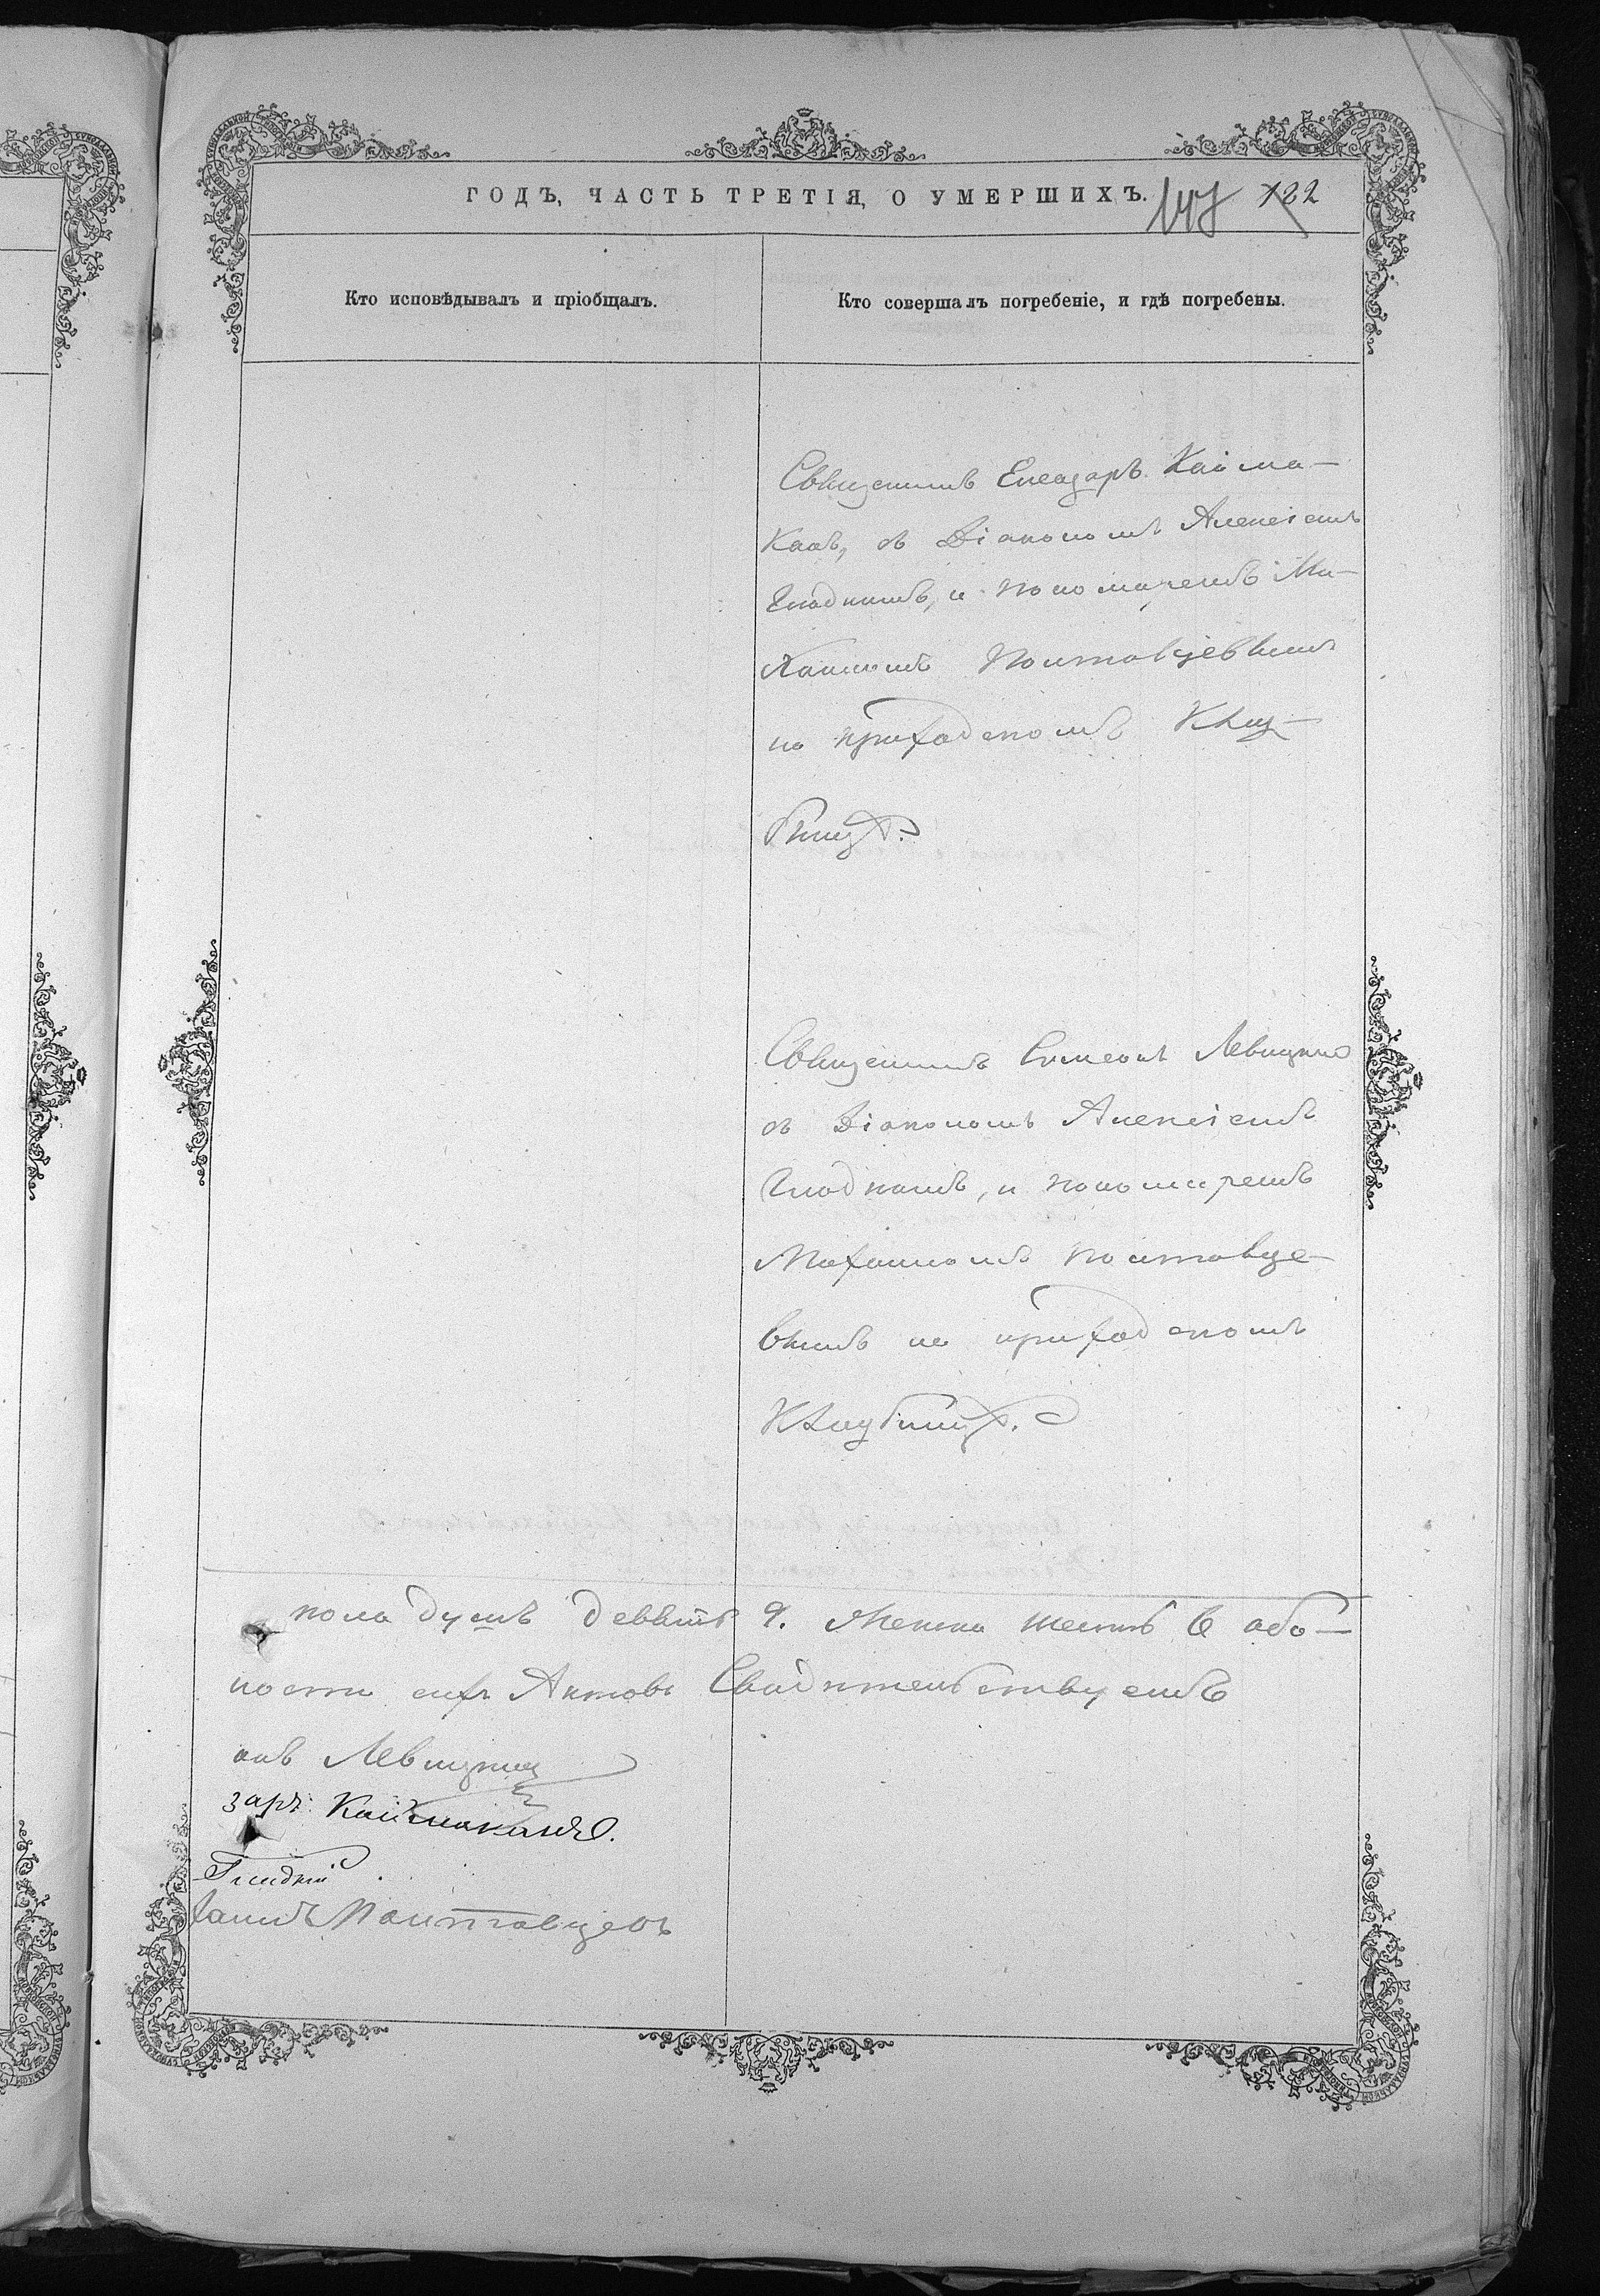 ГОДЪ, ЧАСТЬ ТРЕТІЯ, О УМЕРШИХЪ. 147 122
Кто исповѣдывалъ и пріобщалъ.
Кто совершалъ погребеніе, и гдѣ погребены.
Свящѣнникъ Елеазаръ Кайма-
канъ, съ Діакономъ Алексіемъ
Гладкимъ, и пономаремъ Ми-
хаиломъ Полтавцевымъ
на приходскомъ клад-
бищѣ.
Священникъ Симеонъ Левицкій
съ Діакономъ Алексіемъ
Гладкимъ, и пономаремъ
Михаиломъ Полтавце-
вымъ на приходскомъ
кладбищѣ.
пола душъ девять 9. Женска шесть 6 обо-
ности сихъ Актовъ Свидѣтельствуемъ
онъ Левицкій
заръ Каймаканъ.
Гладкій
хаилъ Полтавцевъ